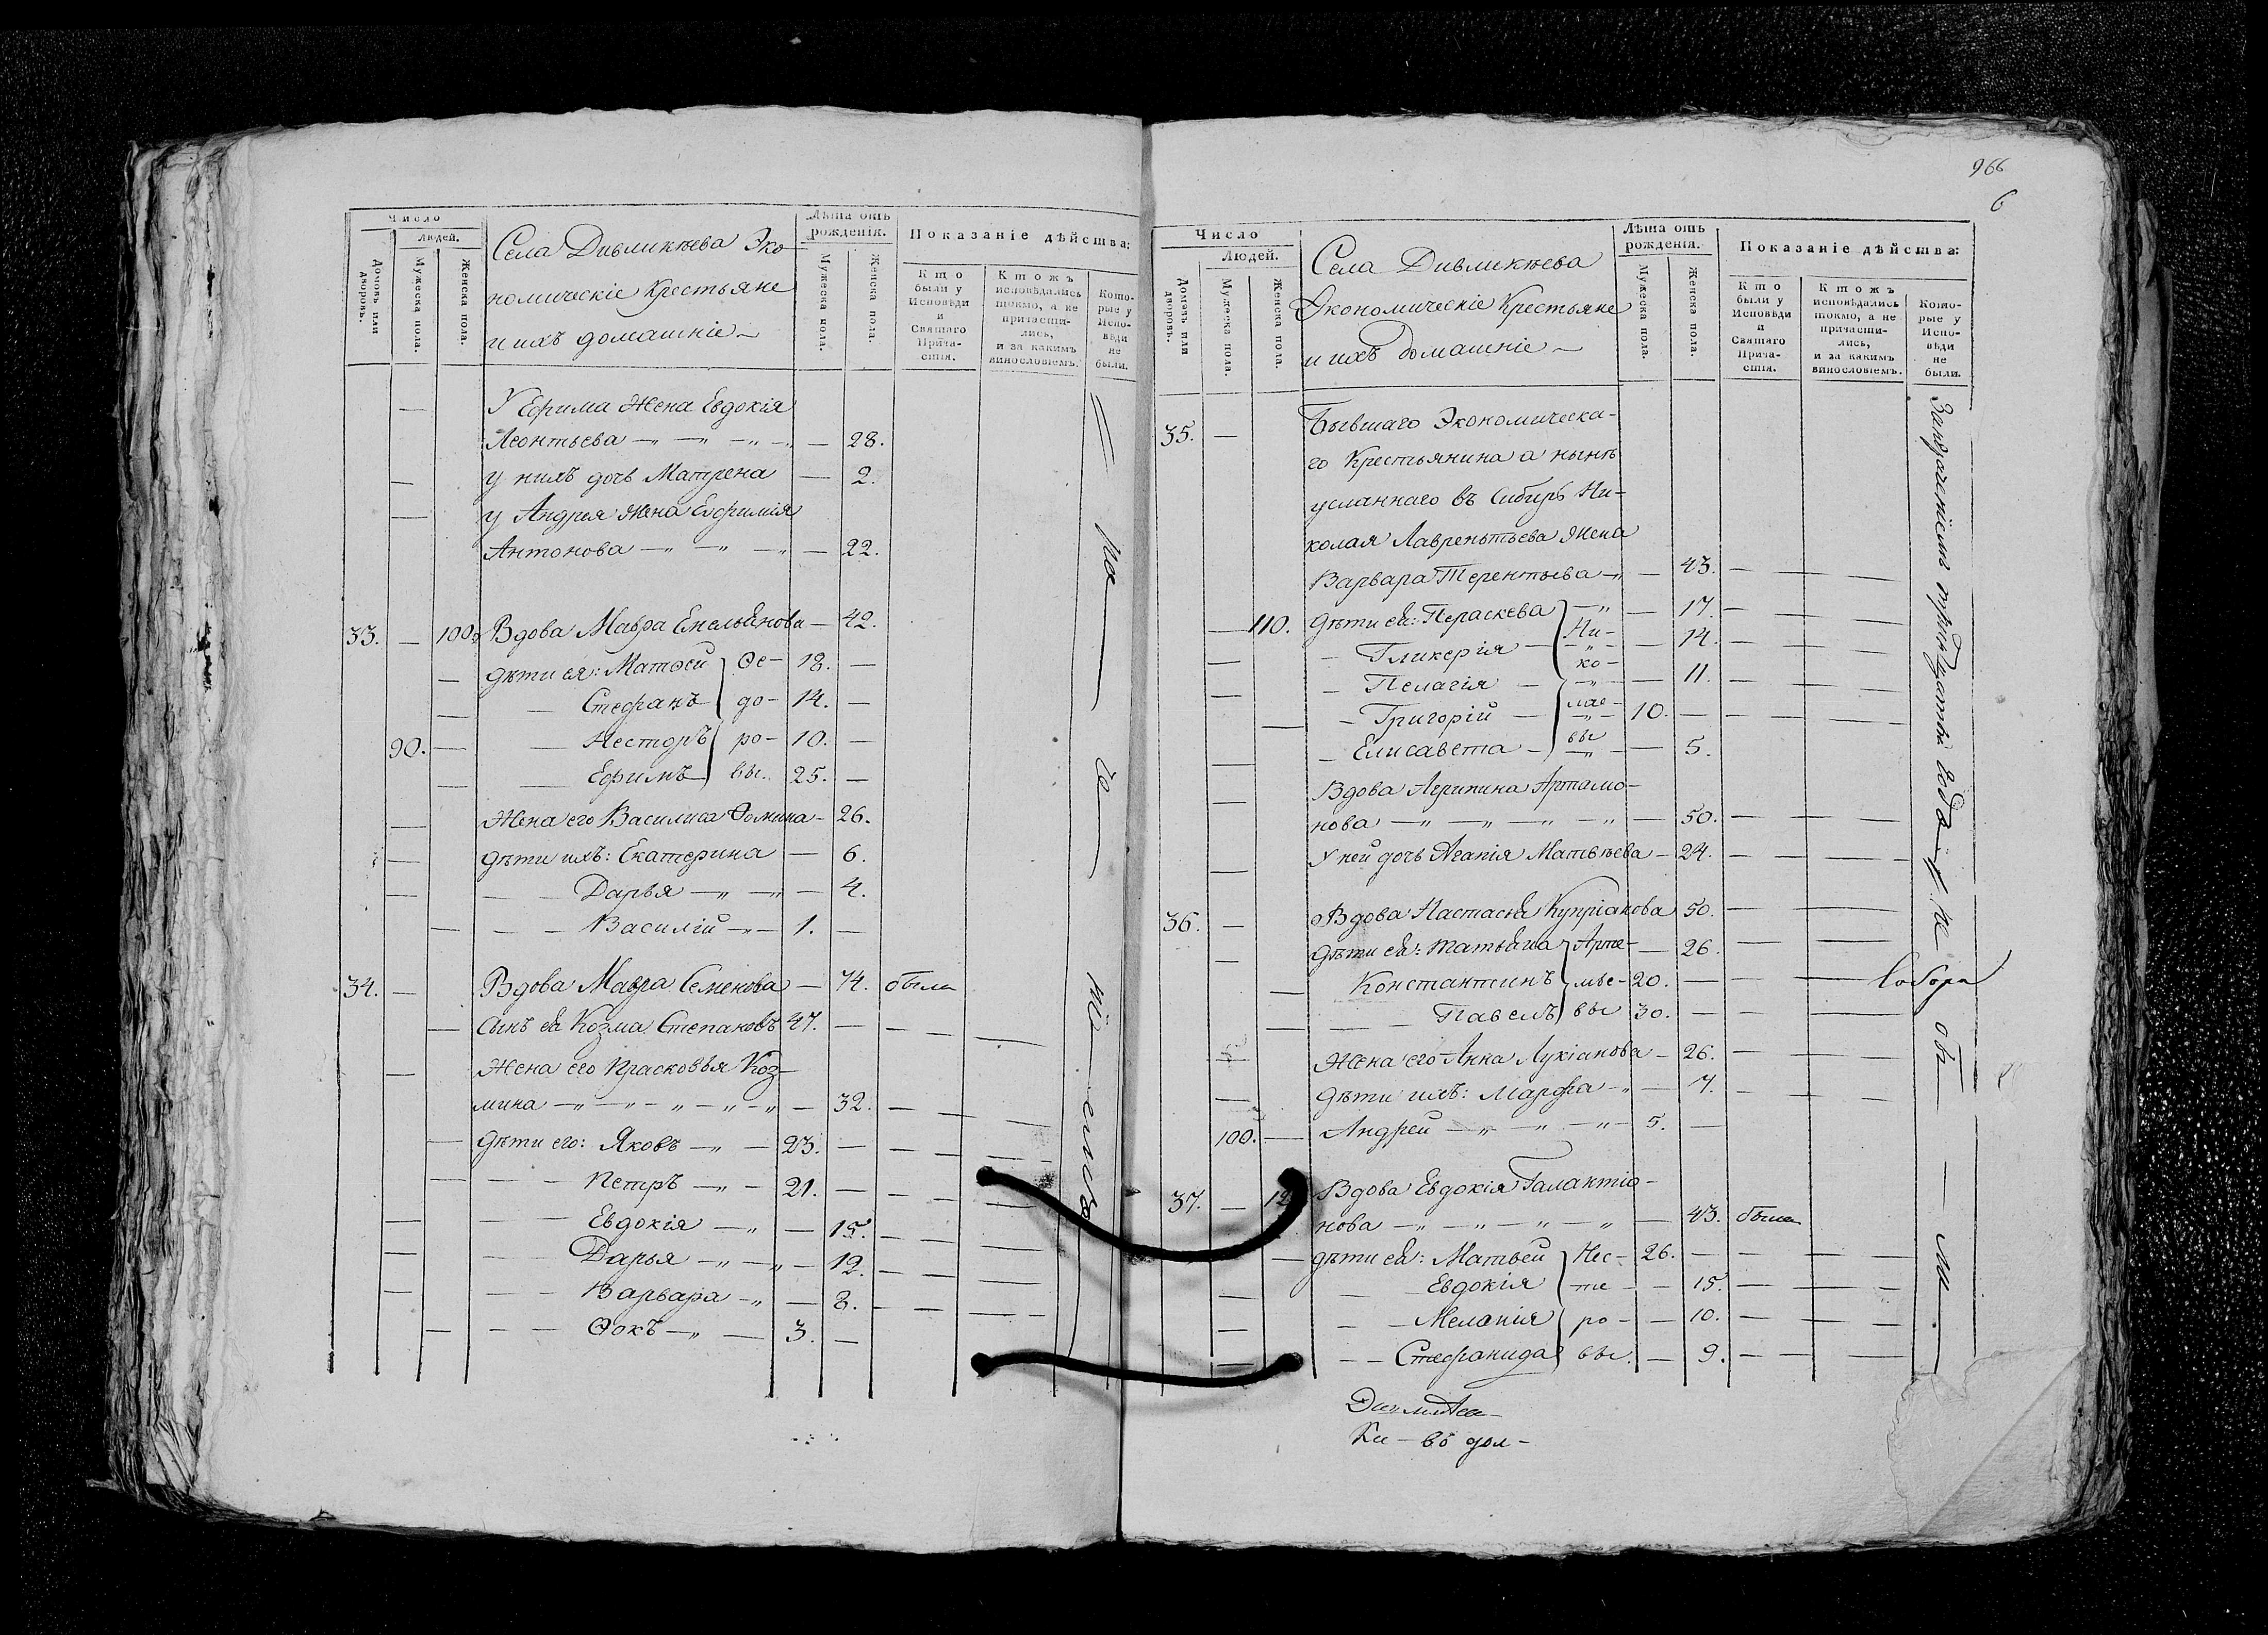 Число
людей.
Домовъ или дворовъ.
Мужеска пола.
Женска пола.
Села Дивликѣева Эко
номическіе Крестьяне
и ихъ домашніе
Лѣта отъ рожденія.
Мужеска пола.
Женска пола.
Показаніе дѣйства:
Кто были у Исповѣди и Святаго Причастія.
Ктожъ исповѣдались токмо, а не причастились, и за какимъ винословіемъ.
Которые у Исповѣди не были.
— У Ефима Жена Евдокія
Леонтьева — 28.
— у нихъ дочь Матрена — 2.
— у Андрея Жена Евфимія
Антонова — 22.
33. — 100. Вдова Мавра Емельянова — 42.
— дѣти ея: Матѳей Ѳе- 18. —
— Стефанъ до- 14. —
90. — Несторъ ро- 10. —
— Ефимъ вы. 25. —
— Жена его Василиса Ѳомина — 26.
— дѣти ихъ: Екатерина — 6.
— Дарья — 4.
— Василій — 1. —
34. — Вдова Мавра Семенова — 74. была
— Сынъ ея Козма Степановъ 47. —
— Жена его Прасковья Коз-
мина — 32. —
— дѣти его: Яковъ — 23. —
— Петръ — 21. —
— Евдокія — 15. —
— Дарья — 12. —
— Варвара — 8. —
— Ѳокъ — 3. —
966
6
Число
Людей.
Домовъ или дворовъ.
Мужеска пола.
Женска пола.
Села Дивликѣева
Экономическіе Крестьяне
и ихъ домашніе
Лѣта отъ рожденія.
Мужеска пола.
Женска пола.
Показаніе дѣйства:
Кто были у Исповѣди и Святаго Причастія.
Ктожъ исповѣдались токмо, а не причастились, и за какимъ винословіемъ.
Которые у Исповѣди не были.
35. — Бывшаго Экономическа-
го Крестьянина а нынѣ
усланнаго въ Сибирь Ни-
колая Лаврентьева Жена
Варвара Терентьева — 43. —
— 110. дѣти ея: Параскева Ни- — 17. —
— Гликерія ко- — 14. —
— Пелагія — 11. —
— Григорій лае- 10. —
— Елисавета вы — 5.
— Вдова Агрипина Артамо-
нова — 50. —
— У ней дочь Агапія Матвѣева — 24. —
36. — Вдова Настасья Купріанова 50. —
— дѣти ея: Татьяна Арте- — 26. —
— Константинъ мье- 20. —
— Павелъ вы 30. —
— Жена его Анна Лукіанова — 26. —
— дѣти ихъ: Марфа — 7. —
100. — Андрей — 5. —
37. — Вдова Евдокія Галактіо-
нова — 43. была
— дѣти ея: Матвей Нес- 26. —
— Евдокія те — 15. —
— Меланія ро- — 10. —
— Стефанида вы. — 9. —